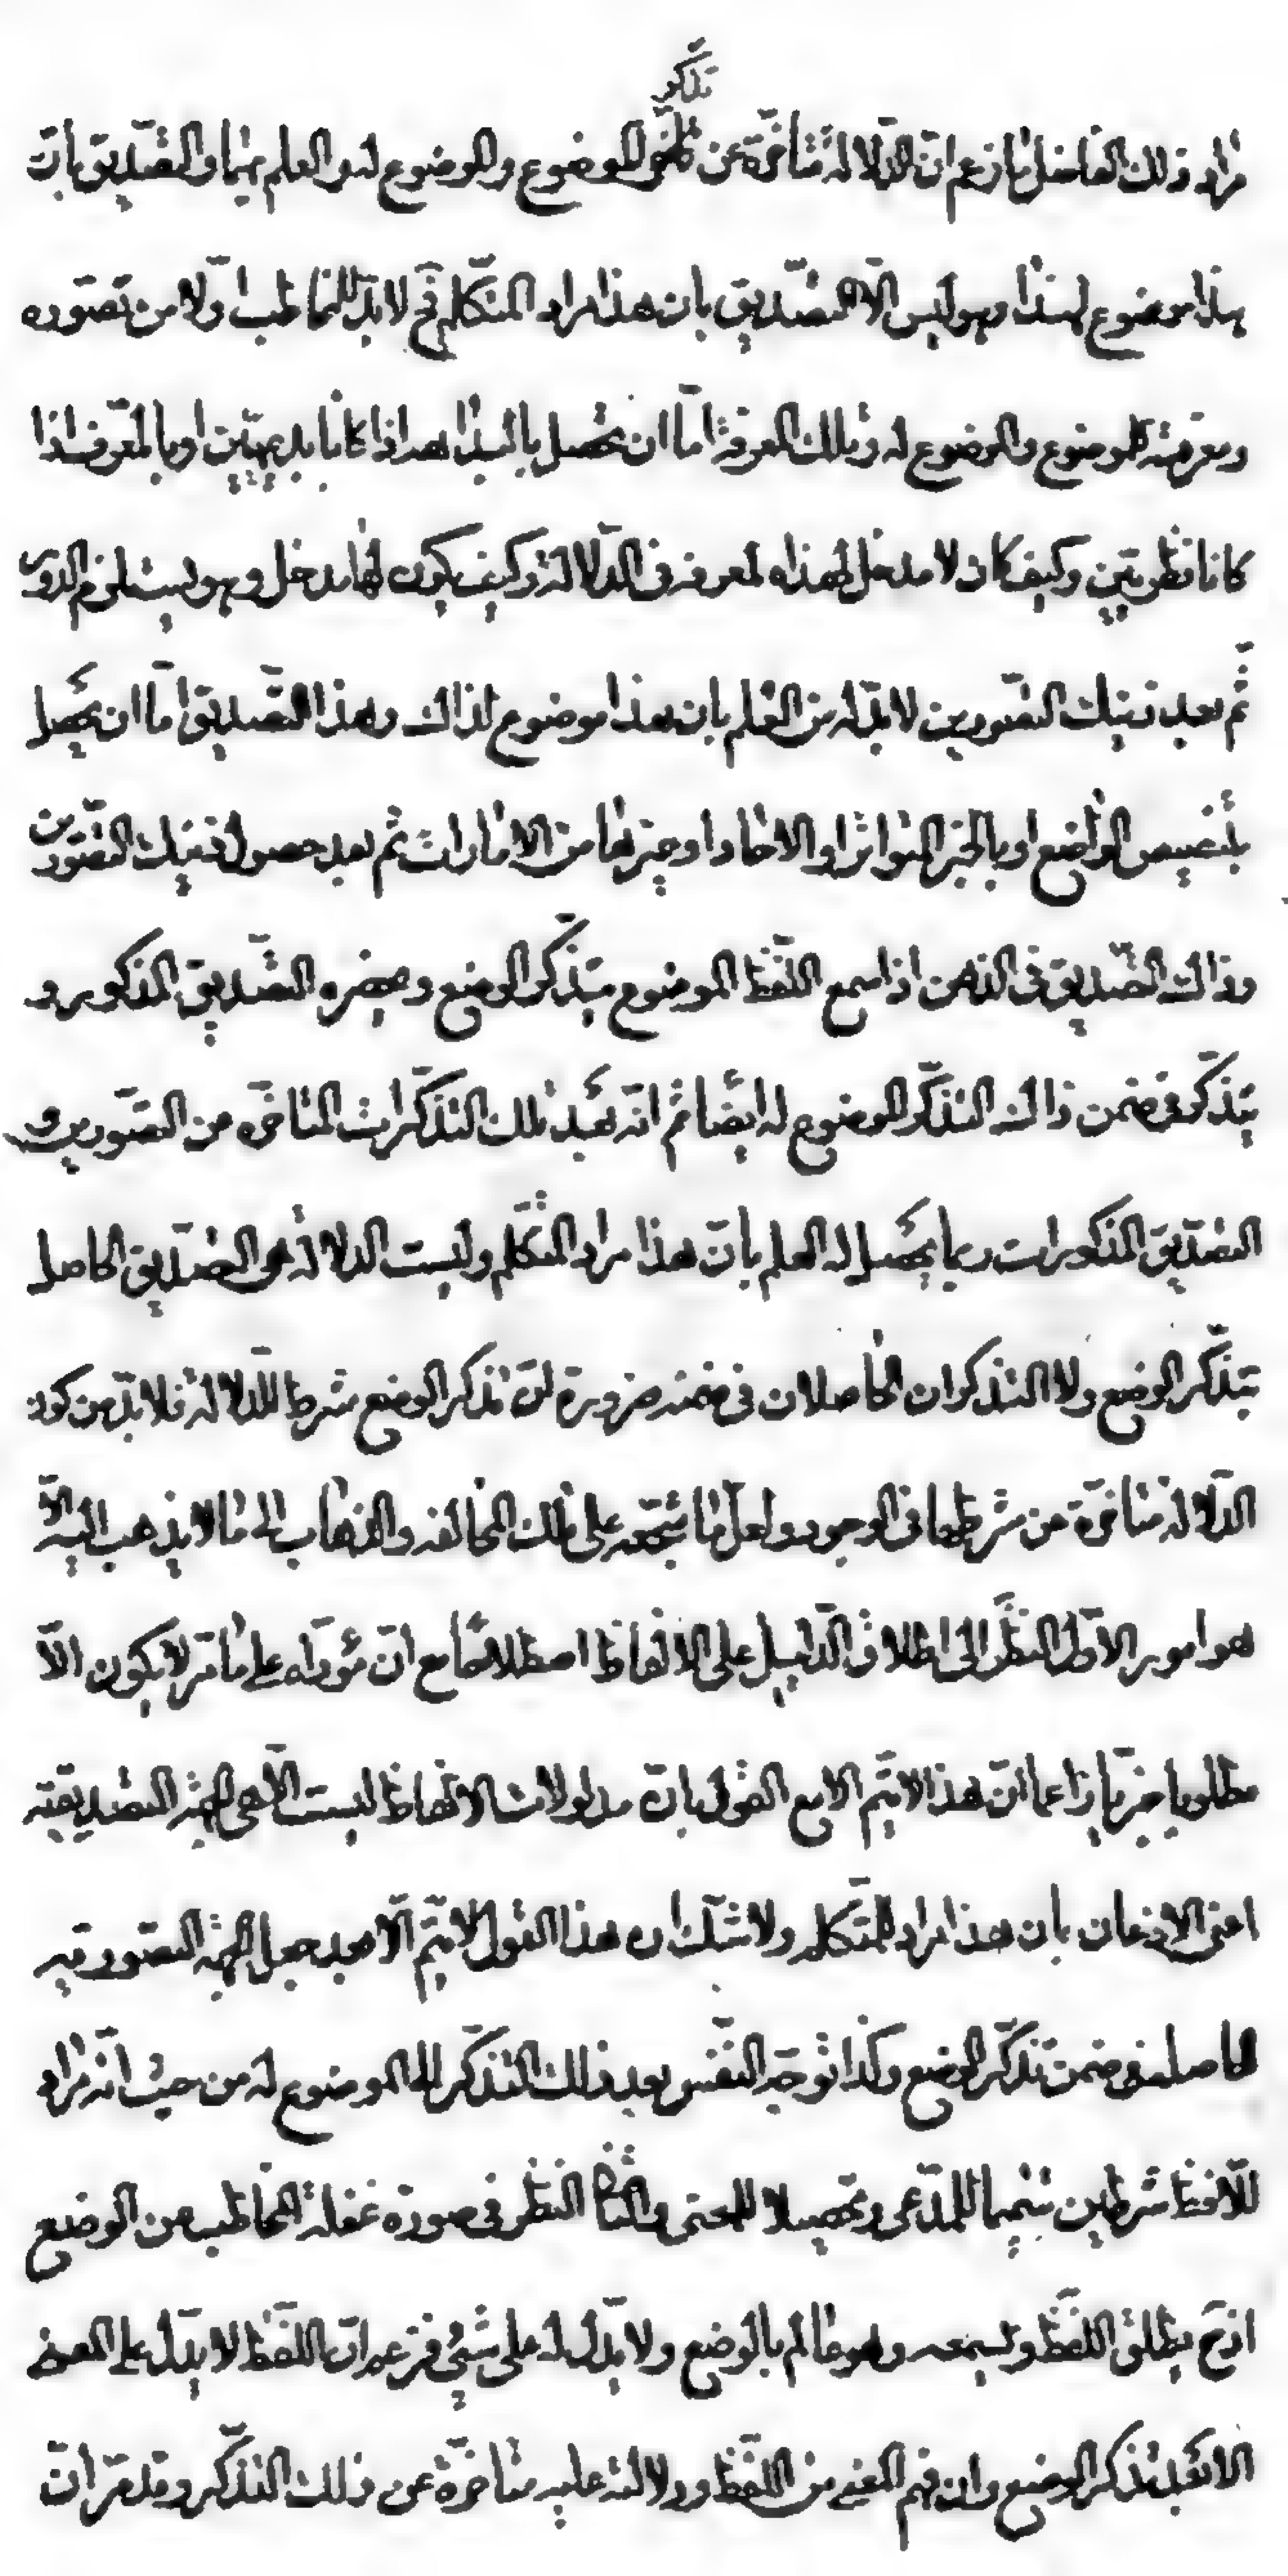 تذكر
مراد ذلك الفاضل بما زعم ان الدلالة متأخرة عن الموضوع والموضوع له والعلم بهما والتصديق بان
هذا موضوع لهذا وهو ليس الا التصديق بان هذا مراد المتكلم فح لا بد للمخاطب اولا من تصوره
ومعرفته للموضوع والموضوع له وتلك المعرفة اما ان تحصل بالبداهة اذا كانا بديهيين او بالمعرف اذا
كانا نظريين وكيف كان لا مدخل لهذه المعرفة في الدلالة وكيف يكون لها مدخل وهو يستلزم الدور
ثم بعد ذينك التصورين لا بد له من العلم بان هذا موضوع لذاك وهذا التصديق اما ان يحصل
بتنصيص الواضع او بالخبر المتواتر او الاحاد او غيرها من الامارات ثم بعد حصول ذينك التصورين
وذاك التصديق في الذهن اذا سمع اللفظ الموضوع يتذكر الوضع ويحضره التصديق المذكور و
يتذكر في ضمن ذاك التذكر الموضوع له ايضا ثم انه بعد تلك التذكرات المتاخره من التصورين و
التصديق المذكورات ربما يحصل له العلم بان هذا مراد المتكلم وليست الدلالة هي التصديق الحاصل
بتذكر الوضع ولا التذكران الحاصلان في ضمنه ضرورة ان تذكر الوضع شرط للدلالة فلا بد من كون
الدلالة متاخرة عن شرطها في الوجود ولعل ما شجعه على تلك المخالفه والذهاب الى ما لا يذهب اليه الا
هو امور الاول النظر الى اطلاق الدليل على الالفاظ اصطلاحا مع ان مؤداه على ما مر لا يكون الا
مطلوبا خبريا زاعما ان هذا لا يتم الا مع القول بان مدلولات الالفاظ ليست الا هي الجهة التصديقيه
اعني الاذعان بان هذا مراد المتكلم ولا شك ان هذا القول لا يتم الا بعد جعل الجهة التصوريه
الحاصله في ضمن تذكر الوضع وكذا توجه النفس بعد ذلك التذكر الى الموضوع له من حيث انه مراد
للافظ شرطين تتميما للمدعى وتحصيلا للمعنى والثاني النظر في صورة غفلة المخاطب عن الوضع
اذ ح يطلق اللفظ ويسمعه وهو عالم بالوضع ولا يدل له على شئ فزعم ان اللفظ لا يدل على المعنى
الا بعد تذكر الوضع وان فهم المعنى من اللفظ ودلالته عليه متاخرة عن ذلك التذكر وقد مر ان